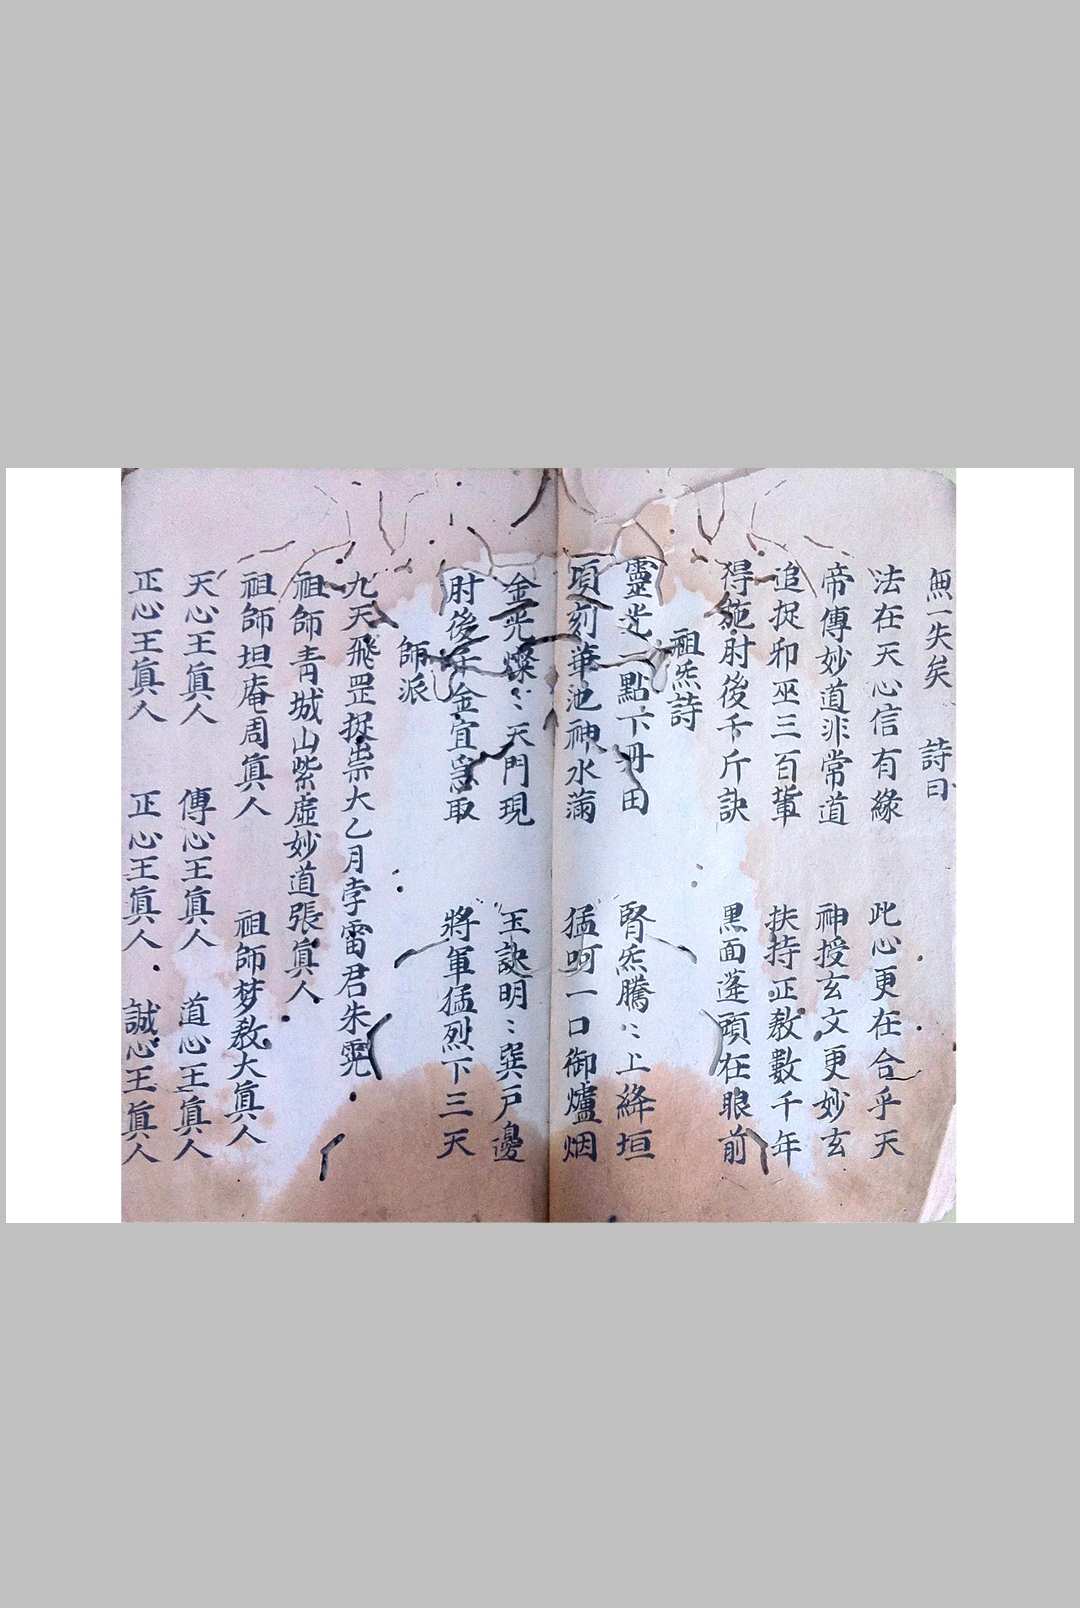 無一失矣 詩曰
法在天心信有緣 此心更在合乎天
帝傳妙道非常道 神授玄文更妙玄
追捉卯巫三百輩 扶持正教數千年
得施肘後千斤訣 黑面蓬頭在眼前
祖炁詩
靈光一點下丹田 腎炁騰〻上絳垣
項刻華池神水滿 猛呵一口御爐烟
金光燦〻天門現 玉訣明〻巽戶邊
肘後千金宜急取 將軍猛烈下三天
師派
九天飛罡捉祟大乙月孛雷君朱
祖師青城山紫虛妙道張眞人
祖師坦庵周眞人 祖師梦教大眞人
天心王眞人 傳心王眞人 道心王眞人
正心王眞人 正心王眞人 誠心王眞人